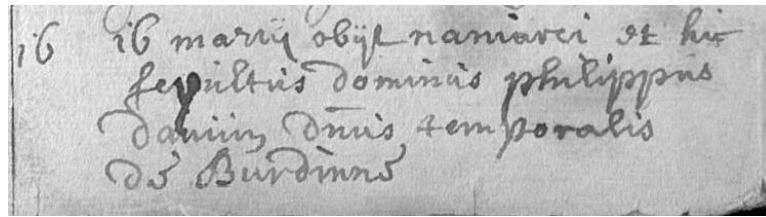 16 16 martij obijt namurci et hic
sepultus dominus philippus
davin, dn̄us temporalis
de Burdinne